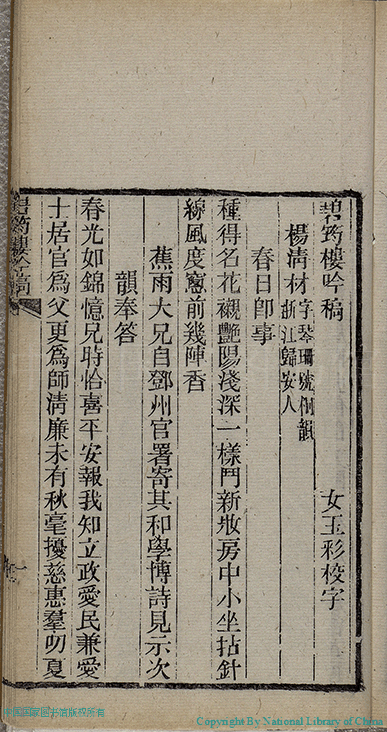 碧筠樓吟稿 女玉彩校字
楊淸材 字琴珊號桐韻
浙江歸安人
春日卽事
種得名花襯艷陽淺深一樣鬥新妝房中小坐拈針
線風度窻前幾陣香
蕉雨大兄自鄧州官署寄其和學博詩見示次
韻奉答
春光如錦憶兄時恰喜平安報我知立政愛民兼愛
士居官爲父更爲師淸廉未有秋毫擾慈惠羣叨夏
碧筠樓吟稿
一
中国国家图书馆版权所有
Copyright By National Library of China